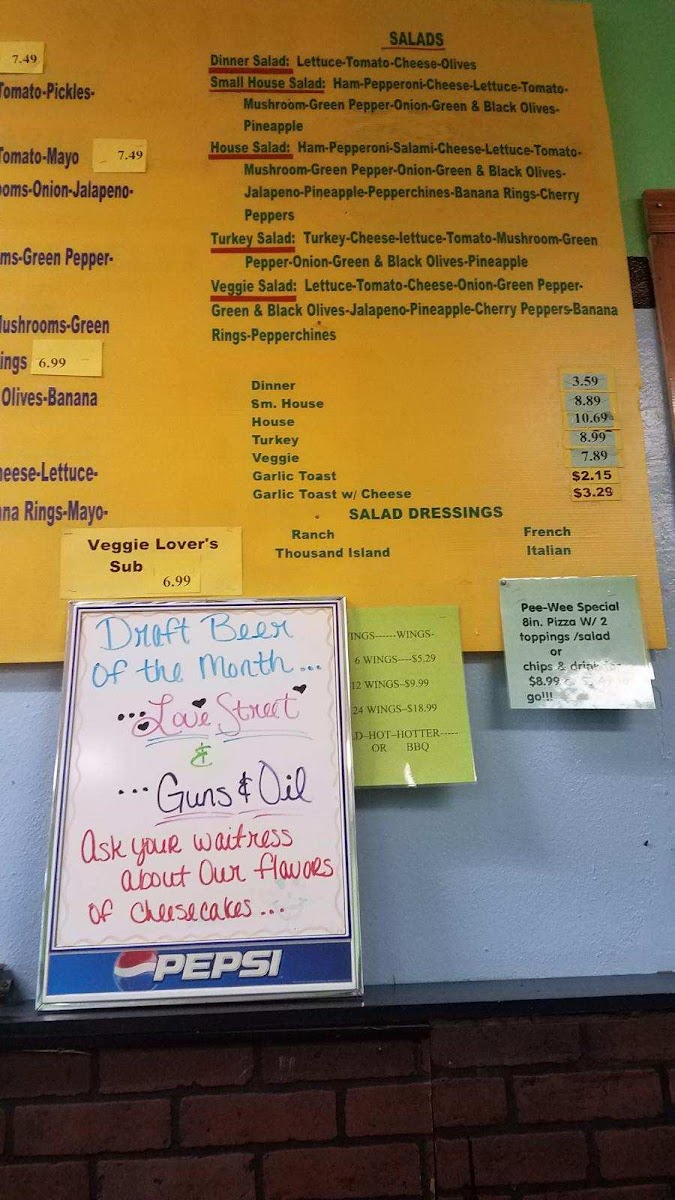 7.49
Tomato-Pickles-
Tomato-Mayo 7.49
ooms-Onion-Jalapeno-
ms-Green Pepper-
ushrooms-Green
ings 6.99
Olives-Banana
heese-Lettuce-
na Rings-Mayo-
Veggie Lover's
Sub
6.99
SALADS
Dinner Salad: Lettuce-Tomato-Cheese-Olives
Small House Salad: Ham-Pepperoni-Cheese-Lettuce-Tomato-
Mushroom-Green Pepper-Onion-Green & Black Olives-
Pineapple
House Salad: Ham-Pepperoni-Salami-Cheese-Lettuce-Tomato-
Mushroom-Green Pepper-Onion-Green & Black Olives-
Jalapeno-Pineapple-Pepperchines-Banana Rings-Cherry
Peppers
Turkey Salad: Turkey-Cheese-lettuce-Tomato-Mushroom-Green
Pepper-Onion-Green & Black Olives-Pineapple
Veggie Salad: Lettuce-Tomato-Cheese-Onion-Green Pepper-
Green & Black Olives-Jalapeno-Pineapple-Cherry Peppers-Banana
Rings-Pepperchines
Dinner 3.59
Sm. House 8.89
House 10.69
Turkey 8.99
Veggie 7.89
Garlic Toast $2.15
Garlic Toast w/ Cheese $3.29
SALAD DRESSINGS
Ranch French
Thousand Island Italian
Draft Beer
of the Month...
...Love Street
&
...Guns & Oil
Ask your waitress
about Our flavors
of cheesecakes...
PEPSI
INGS------WINGS-
6 WINGS----$5.29
12 WINGS--$9.99
24 WINGS--$18.99
LD--HOT--HOTTER-----
OR BBQ
Pee-Wee Special
8in. Pizza W/ 2
toppings /salad
or
chips & drink
$8.99
go!!!